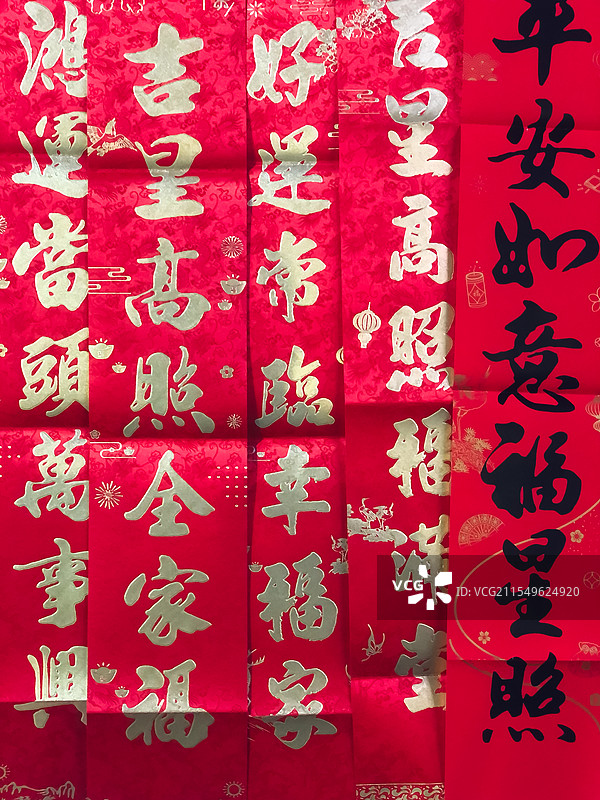 平安如意福星照
吉星高照福滿堂
好運常臨幸福家
吉星高照全家福
鴻運當頭萬事興
VCG
ID: VCG211549624920